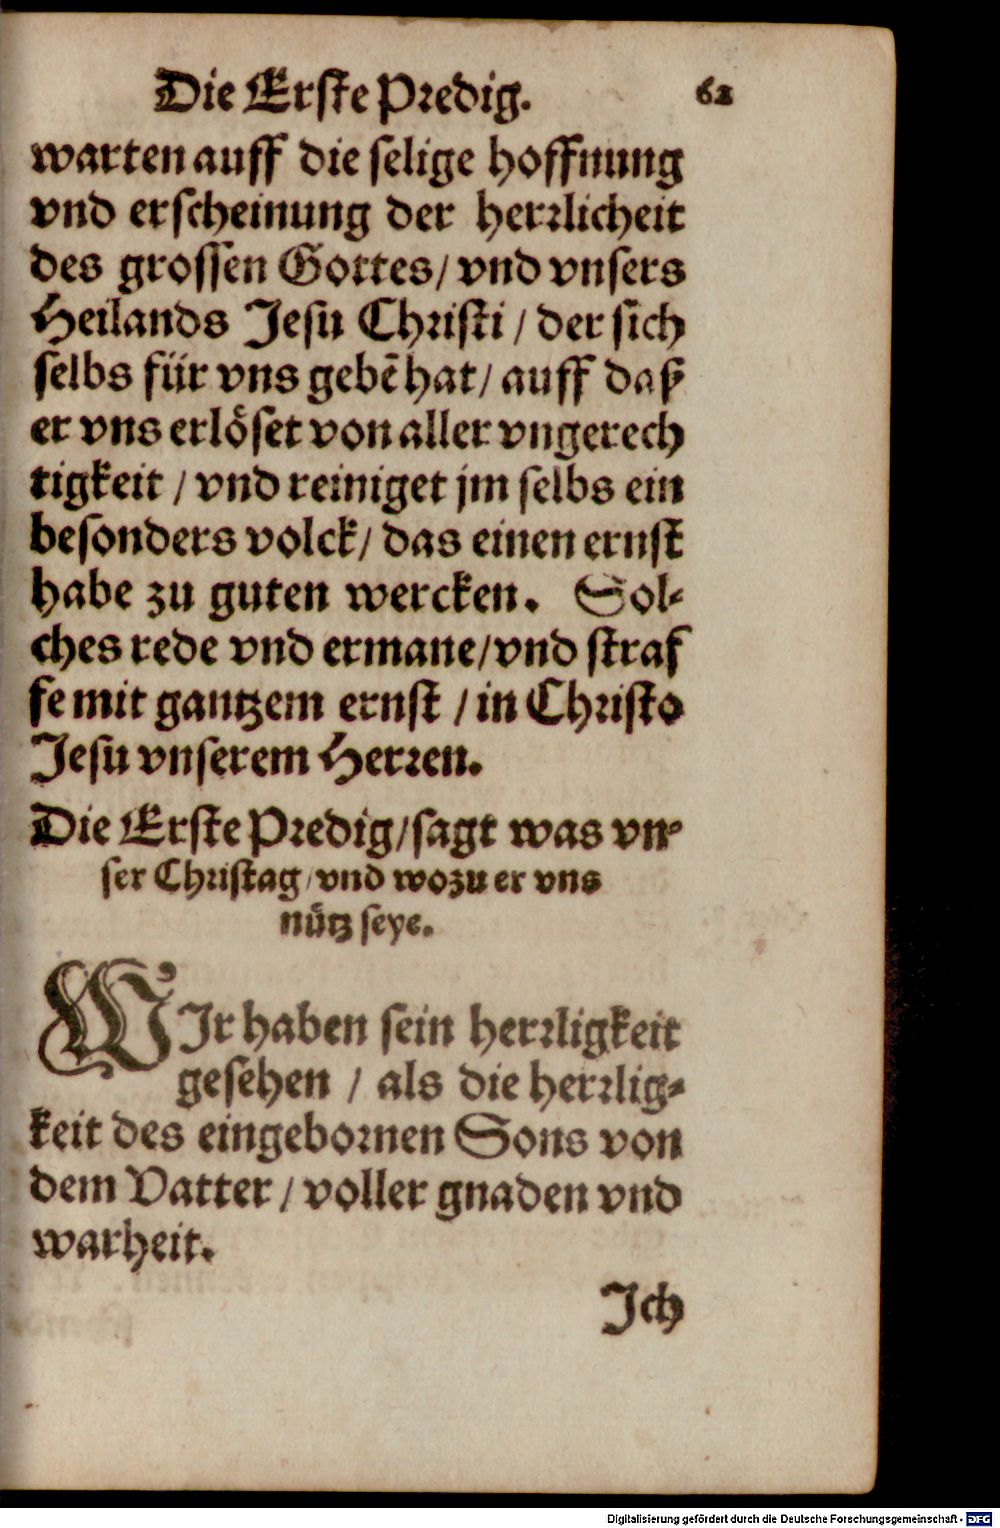 Die Erste Predig. 62
warten auff die selige hoffnung
vnd erscheinung der herrlicheit
des grossen Gottes/ vnd vnsers
Heilands Jesu Christi / der sich
selbs für vns gebē hat/ auff daß
er vns erlöset von aller vngerech
tigkeit / vnd reiniget jm selbs ein
besonders volck/ das einen ernst
habe zu guten wercken. Sol-
ches rede vnd ermane/vnd straf
fe mit gantzem ernst / in Christo
Jesu vnserem Herren.
Die Erste Predig/sagt was vn-
ser Christag/vnd wozu er vns
nütz seye.
WIr haben sein herrligkeit
gesehen / als die herrlig-
keit des eingebornen Sons von
dem Vatter / voller gnaden vnd
warheit.
Ich
Digitalisierung gefördert durch die Deutsche Forschungsgemeinschaft - DFG